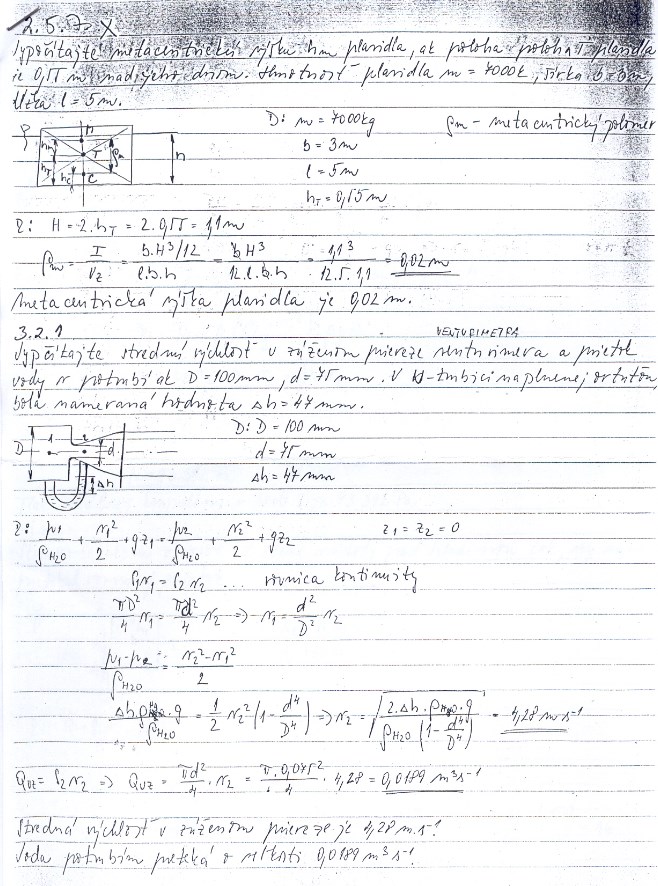 2.5.7. X
Vypočítajte metacentrickú výšku hm plavidla, ak poloha plavidla
je 0,55 m nad jeho dnom. Hmotnosť plavidla m = 7000k, šírka b = 3m,
l = 5m.
D: m = 7000kg ρm - metacentrický polomer
b = 3m
l = 5m
hT = 0,55m
R: H = 2.hT = 2.0,55 = 1,1m
ρm = I/Vz = b.H³/12 / l.b.h = b H³ / 12.l.b.h = 1,1³ / 12.5.1,1 = 0,02 m
Metacentrická výška plavidla je 0,02 m.
3.2.1 VENTURIMETRA
Vypočítajte strednú rýchlosť v zúženom priereze venturimera a prietok
vody v potrubí ak D = 100mm, d = 75 mm. V U-trubici naplnenej ortuťou,
bola nameraná hodnota Δh = 47 mm.
D: D = 100 mm
d = 75 mm
Δh = 47 mm
D 1 2 d Δh
R: p1/ρH2O + v1²/2 + gz1 = p2/ρH2O + v2²/2 + gz2 z1 = z2 = 0
S1v1 = S2v2 ... rovnica kontinuity
πD²/4 v1 = πd²/4 v2 => v1 = d²/D² v2
p1-p2/ρH2O = v2²-v1²/2
Δh.ρHg.g/ρH2O = 1/2 v2² (1 - d⁴/D⁴) => v2 = √(2.Δh.ρHg.g / ρH2O (1 - d⁴/D⁴)) = 4,28 m s⁻¹
QVZ = S2v2 => QVZ = πd²/4 . v2 = π.0,075²/4 . 4,28 = 0,0189 m³s⁻¹
Stredná rýchlosť v zúženom priereze je 4,28 m.s⁻¹.
Voda potrubím preteká o veľkosti 0,0189 m³s⁻¹.